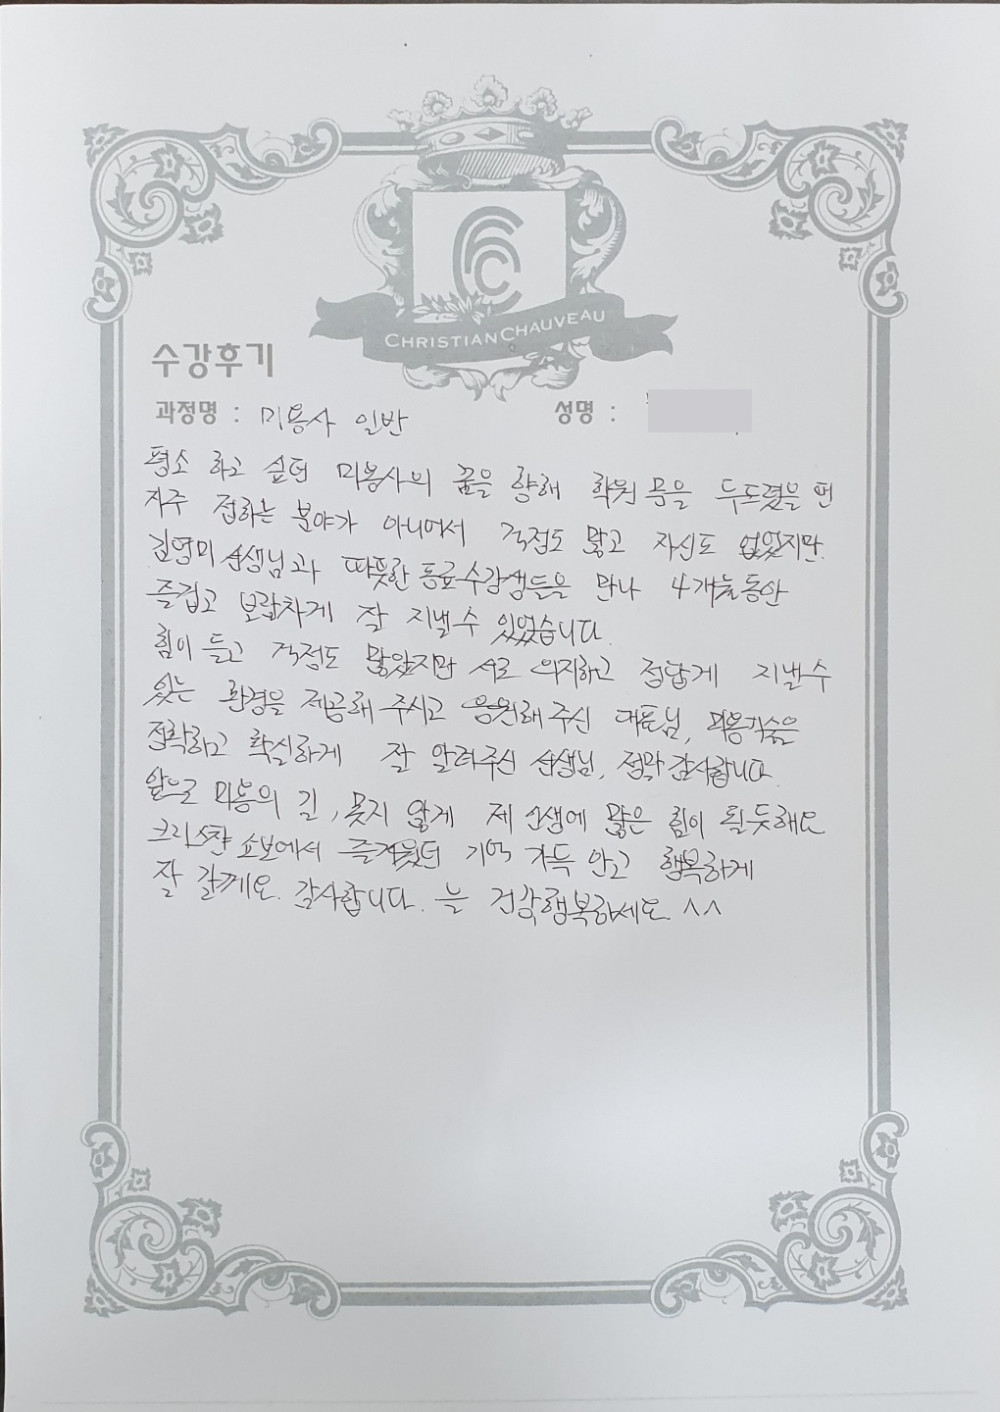 CHRISTIAN CHAUVEAU
수강후기
과정명 : 미용사 일반 성명 :
평소 하고 싶던 미용사의 꿈을 향해 학원 문을 두드렸을 땐
자주 접하는 분야가 아니어서 걱정도 많고 자신도 없었지만
김영미 선생님과 따뜻한 동료수강생들을 만나 4개월동안
즐겁고 보람차게 잘 지낼수 있었습니다.
힘이 들고 걱정도 많았지만 서로 의지하고 정답게 지낼수
있는 환경을 제공해 주시고 응원해 주신 대표님, 미용기술을
정확하고 확실하게 잘 알려주신 선생님, 정말 감사합니다
앞으로 미용의 길, 못지 않게 제 인생에 많은 힘이 될듯해요
크리스챤 쇼보에서 즐거웠던 기억 가득 안고 행복하게
잘 갈께요. 감사합니다. 늘 건강행복하세요 ^^